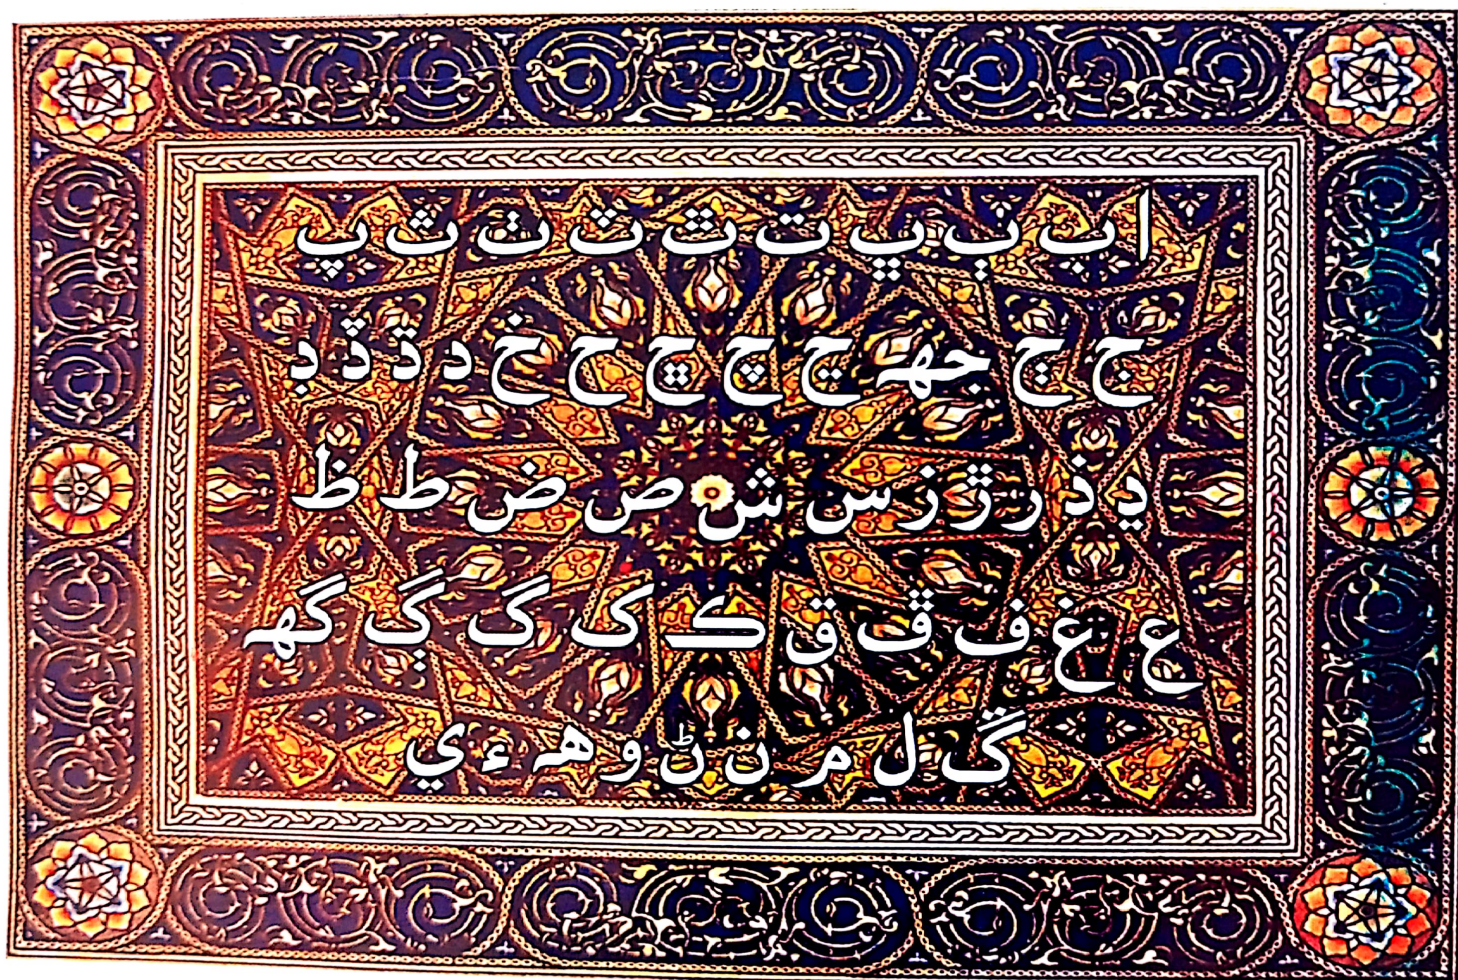 ا ب ٻ ڀ ت ٿ ٽ ٺ ث پ
ج ڄ جهہ ڃ چ ڇ ح خ د ڌ ڏ ڊ
ڍ ذ ر ڙ ز س ش ص ض ط ظ
ع غ ف ڦ ق ڪ ک گ ڳ گهہ
ڱ ل م ن ڻ و هہ ء ي